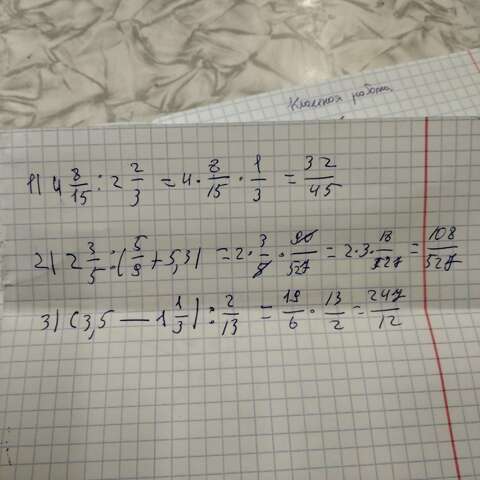 Классная работа.
1) 4 8/15 : 2 2/3 = 4 · 8/15 · 1/3 = 32/45
2) 2 3/5 : (5/9 + 5,3) = 2 · 3/5 · 90/527 = 2 · 3 · 18/527 = 108/527
3) (3,5 — 1 1/3) : 2/13 = 19/6 · 13/2 = 247/12